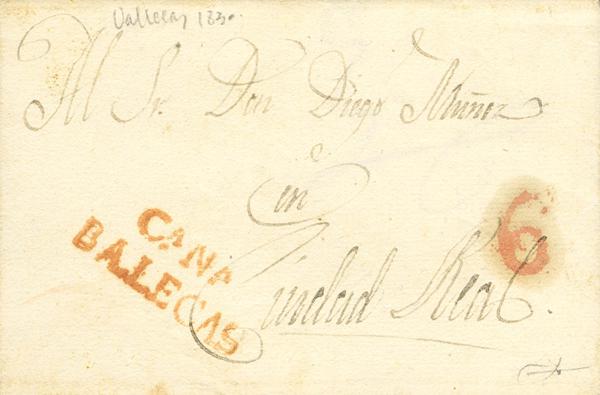 Vallecas 183
Al Sr. Don Diego Muñoz
en
Ciudad Real.
CANA
BALLECAS
6